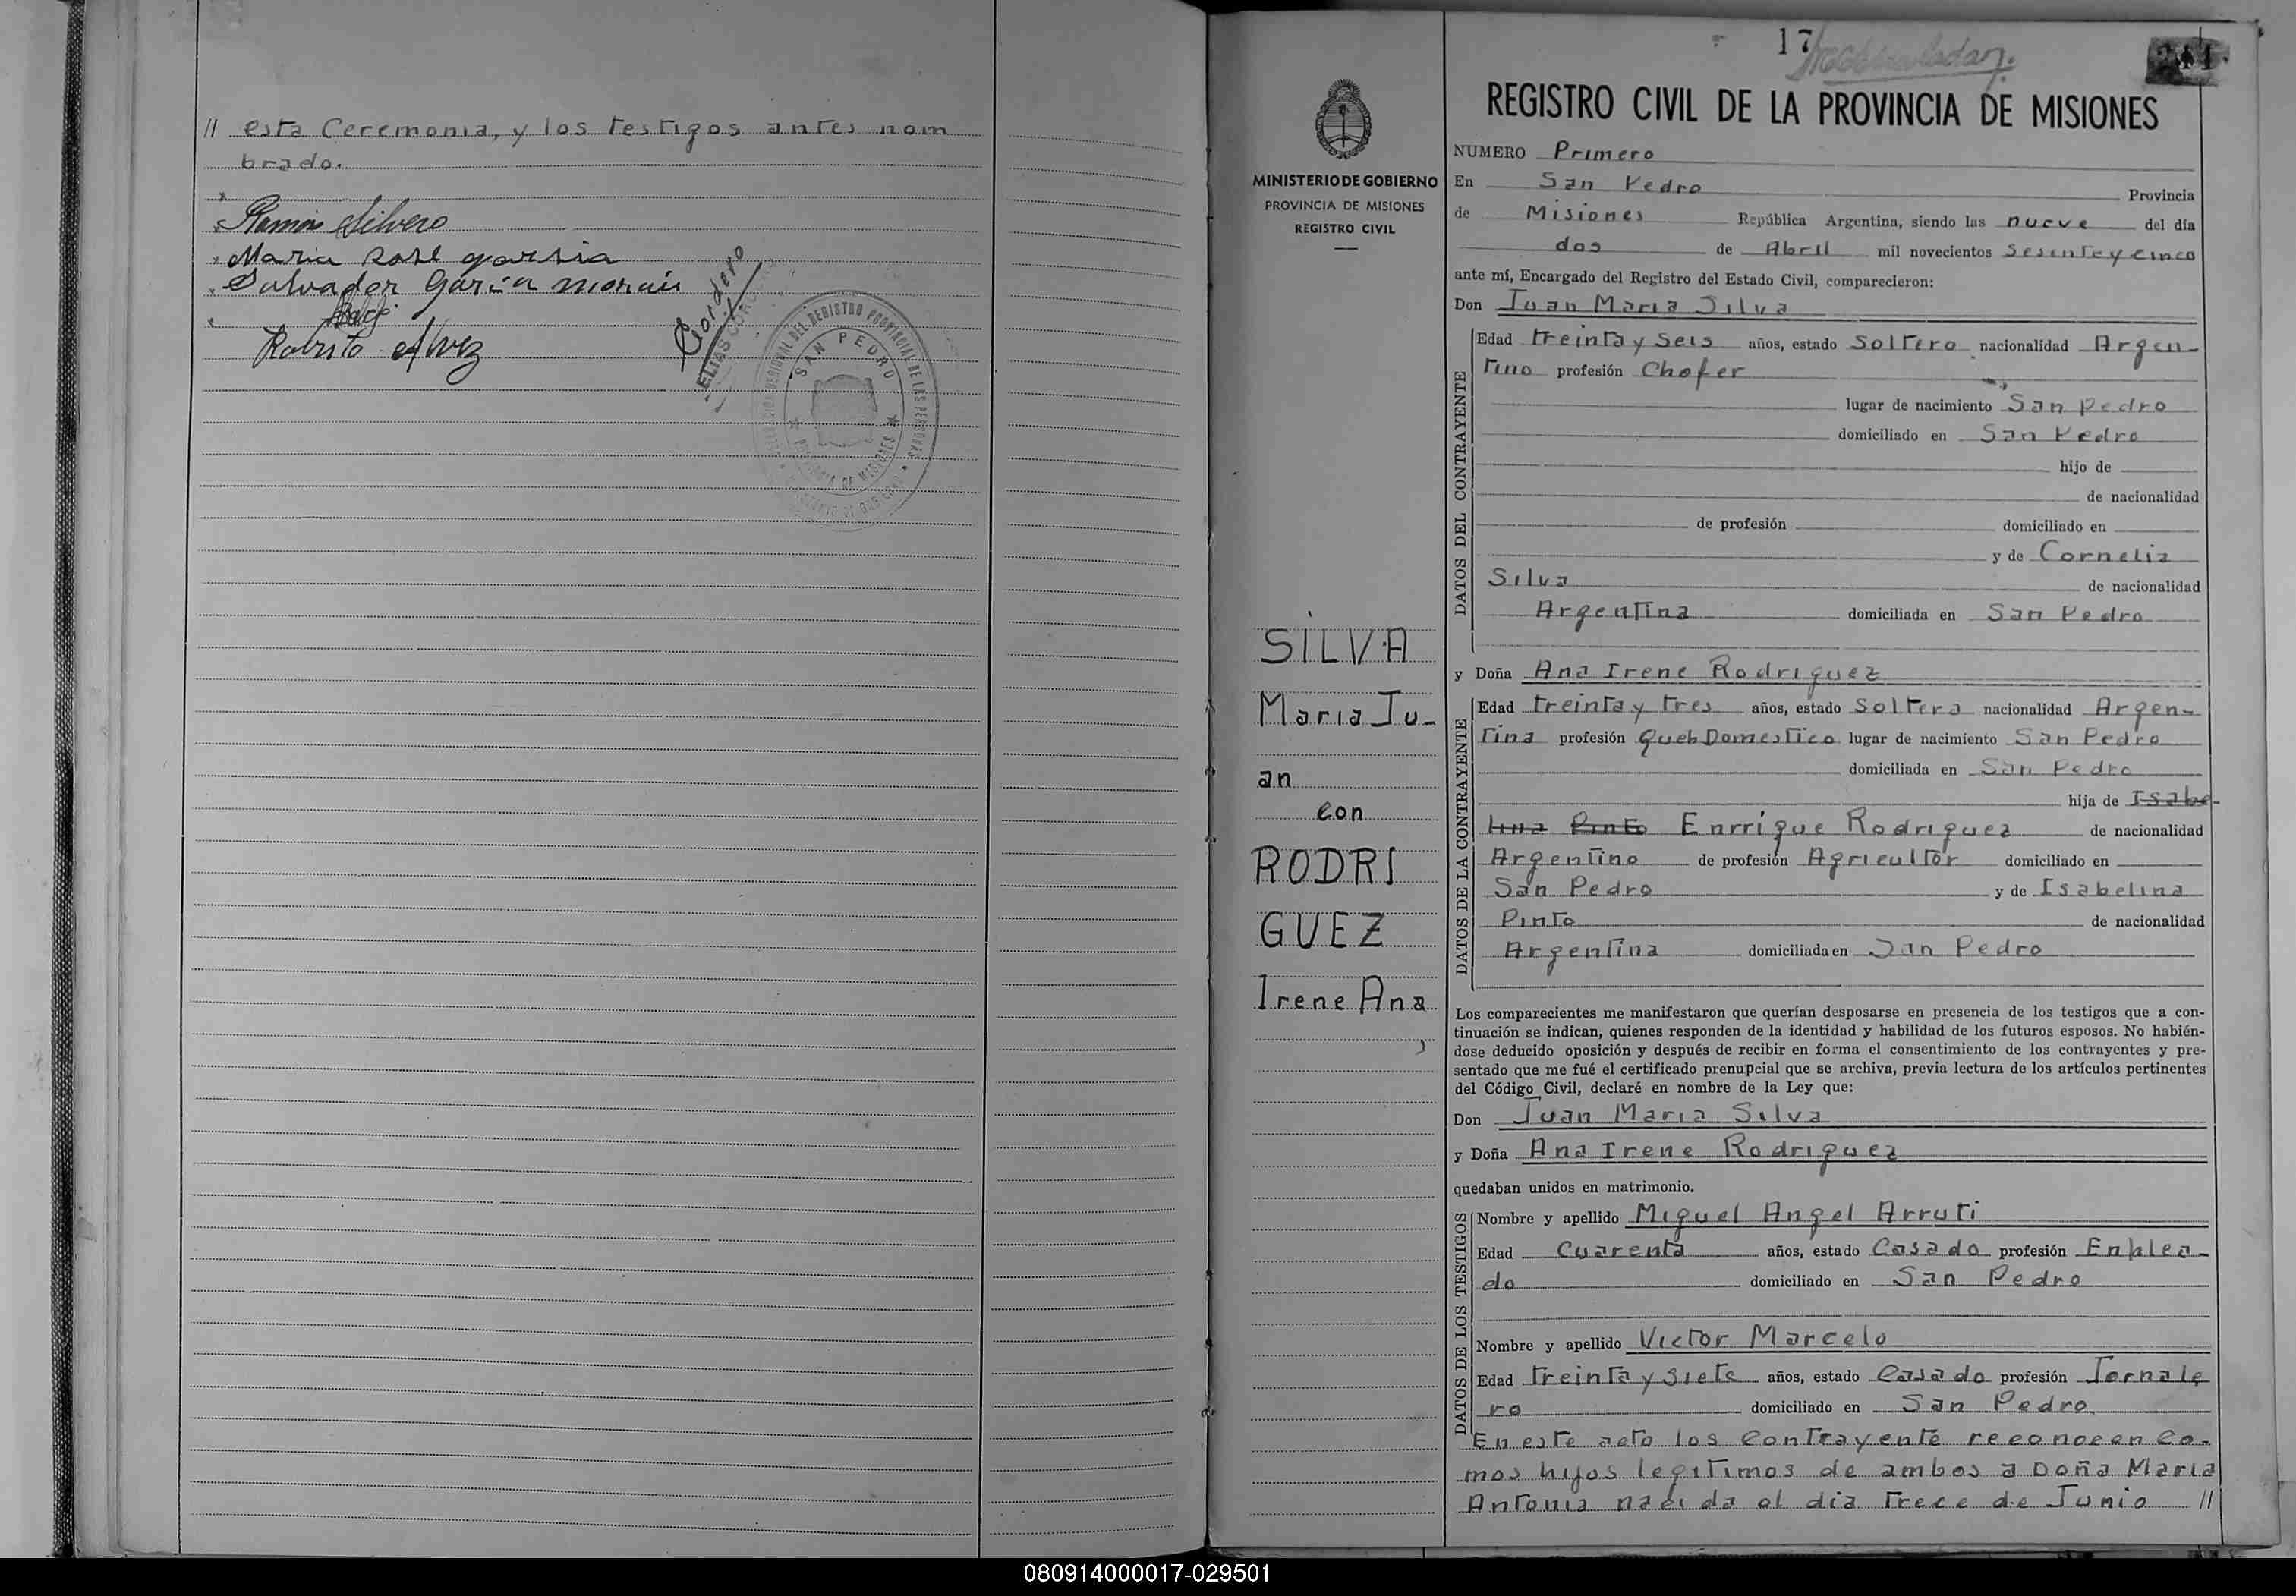 // esta Ceremonia, y los testigos antes nom
brado.
Ramón Silvero
Maria Rosl garsia
Salvador Garcia morais
Roberto Alvez
Cordero
ELIAS CORDERO
REGISTRO PROVINCIAL DE LAS PERSONAS
SAN PEDRO
PROVINCIA DE MISIONES
MINISTERIO DE GOBIERNO
PROVINCIA DE MISIONES
REGISTRO CIVIL
SILVA
Maria Ju-
an
con
RODRI
GUEZ
Irene Ana
17
241
REGISTRO CIVIL DE LA PROVINCIA DE MISIONES
NUMERO Primero
En San Pedro Provincia
de Misiones República Argentina, siendo las nueve del día
dos de Abril mil novecientos Sesentaycinco
ante mí, Encargado del Registro del Estado Civil, comparecieron:
Don Juan Maria Silva
DATOS DEL CONTRAYENTE
Edad treinta y Seis años, estado Soltero nacionalidad Argen-
tino profesión Chofer
lugar de nacimiento San Pedro
domiciliado en San Pedro
hijo de
de nacionalidad
de profesión domiciliado en
y de Cornelia
Silva de nacionalidad
Argentina domiciliada en San Pedro
y Doña Ana Irene Rodriguez
DATOS DE LA CONTRAYENTE
Edad treinta y tres años, estado Soltera nacionalidad Argen-
tina profesión Queh Domestico lugar de nacimiento San Pedro
domiciliada en San Pedro
hija de Isabe-
lina Pinto Enrrique Rodriguez de nacionalidad
Argentino de profesión Agricultor domiciliado en
San Pedro y de Isabelina
Pinto de nacionalidad
Argentina domiciliada en San Pedro
Los comparecientes me manifestaron que querían desposarse en presencia de los testigos que a con-
tinuación se indican, quienes responden de la identidad y habilidad de los futuros esposos. No habién-
dose deducido oposición y después de recibir en forma el consentimiento de los contrayentes y pre-
sentado que me fué el certificado prenupcial que se archiva, previa lectura de los artículos pertinentes
del Código Civil, declaré en nombre de la Ley que:
Don Juan Maria Silva
y Doña Ana Irene Rodriguez
quedaban unidos en matrimonio.
DATOS DE LOS TESTIGOS
Nombre y apellido Miguel Angel Arruti
Edad Cuarenta años, estado Casado profesión Enplea-
do domiciliado en San Pedro
Nombre y apellido Victor Marcelo
Edad treinta y siete años, estado Casado profesión Jornale
ro domiciliado en San Pedro
En este acto los contrayente reconocen co-
mos hijos legitimos de ambos a Doña Maria
Antonia nacida el dia trece de Junio //
080914000017-029501